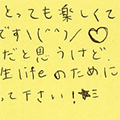 とっても楽しくて
です\(^^)/♡
だと思うけど、
生lifeのために
って下さい!★彡